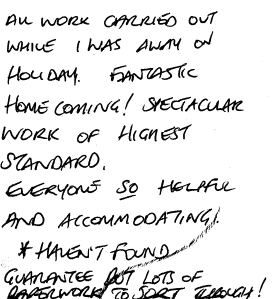 ALL WORK CARRIED OUT
WHILE I WAS AWAY ON
HOLIDAY. FANTASTIC
HOME COMING! SPECTACULAR
WORK OF HIGHEST
STANDARD.
EVERYONE SO HELPFUL
AND ACCOMMODATING!
* HAVEN'T FOUND
GUARANTEE BUT LOTS OF
PAPERWORK TO SORT THROUGH!